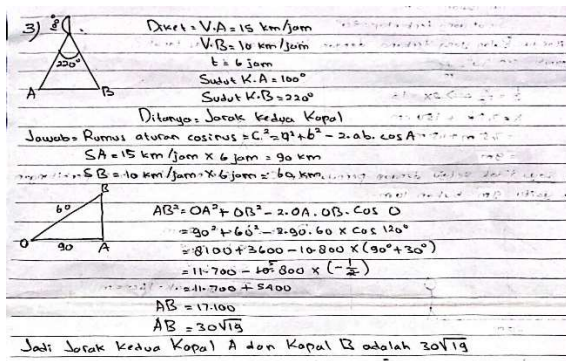 3) Diket = V.A = 15 km/jam
V.B = 10 km/jam
220°
t = 6 jam
Sudut K.A = 100°
A B
Sudut K.B = 220°
Ditanya = Jarak kedua Kapal
Jawab = Rumus aturan cosinus = C² = a² + b² - 2.ab. cos A
SA = 15 km/jam x 6 jam = 90 km
SB = 10 km/jam x 6 jam = 60 km
B
60
O 90 A
AB² = OA² + OB² - 2.OA. OB. Cos O
= 90² + 60² - 2.90.60 x cos 120°
= 8100 + 3600 - 10.800 x (90° + 30°)
= 11.700 - 10.800 x (-1/2)
= 11.700 + 5400
AB = 17.100
AB = 30√19
Jadi Jarak Kedua Kapal A dan Kapal B adalah 30√19